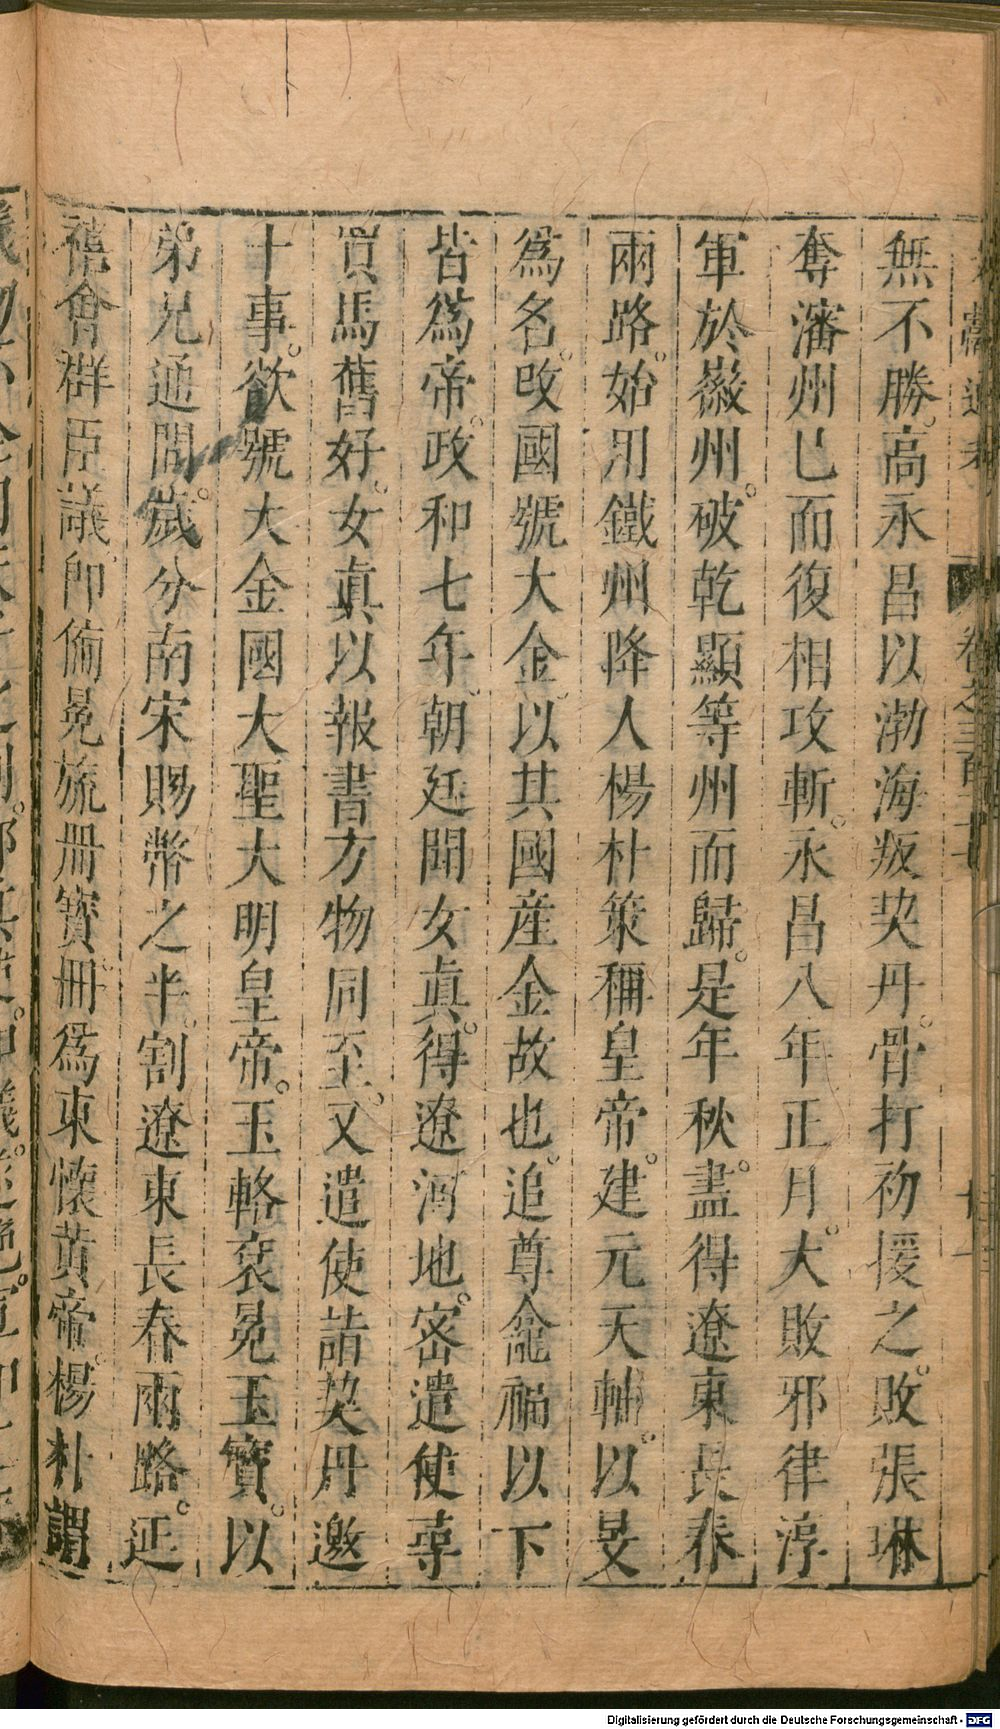 無不勝。高永昌以渤海叛契丹。骨打初援之。敗張琳
奪瀋州已而復相攻斬。永昌八年正月。大敗邪律淳
軍於嶶州。破乾顯等州而歸。是年秋。盡得遼東長春
兩路。始用鐵州降人楊朴策稱皇帝。建元天輔。以旻
為名。改國號大金。以其國産金故也。追尊龕福以下
皆為帝。政和七年。朝廷聞女真。得遼河地。密遣使尋
買馬舊好。女真以報書方物同至。又遣使詣契丹邀
十事。欲號大金國大聖大明皇帝。玉輅袞冕玉寶。以
弟兄通問。歲分南宋賜幣之半。割遼東長春兩路。延
禧會群臣議。卽備冕旒冊寶。冊為東懷黄帝。楊朴謂
Digitalisierung gefördert durch die Deutsche Forschungsgemeinschaft - DFG